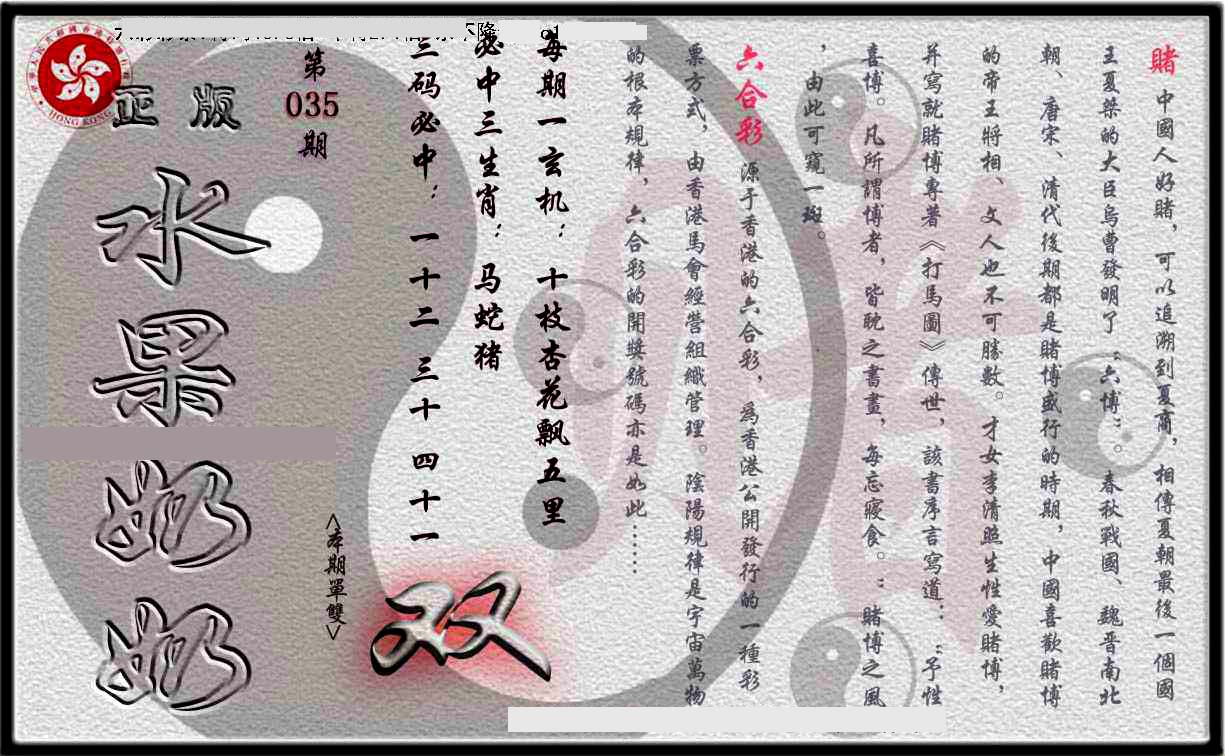 正版
水果奶奶
第
035
期
<本期單雙>
双
每期一玄机：十枝杏花飘五里
必中三生肖：马蛇猪
三码必中：一十二 三十 四十一
賭 中國人好賭，可以追溯到夏商，相傳夏朝最後一個國
王夏桀的大臣烏曹發明了“六博”。春秋戰國、魏晋南北
朝、唐宋、清代後期都是賭博盛行的時期，中國喜歡賭博
的帝王將相、文人也不可勝數。才女李清照生性愛賭博，
并寫就賭博專著《打馬圖》傳世，該書序言寫道：“予性
喜博。凡所謂博者，皆耽之書畫，每忘寢食。”賭博之風
，由此可窺一斑。
六合彩 源于香港的六合彩，爲香港公開發行的一種彩
票方式，由香港馬會經營組織管理。陰陽規律是宇宙萬物
的根本規律，六合彩的開獎號碼亦是如此……
HONG KONG